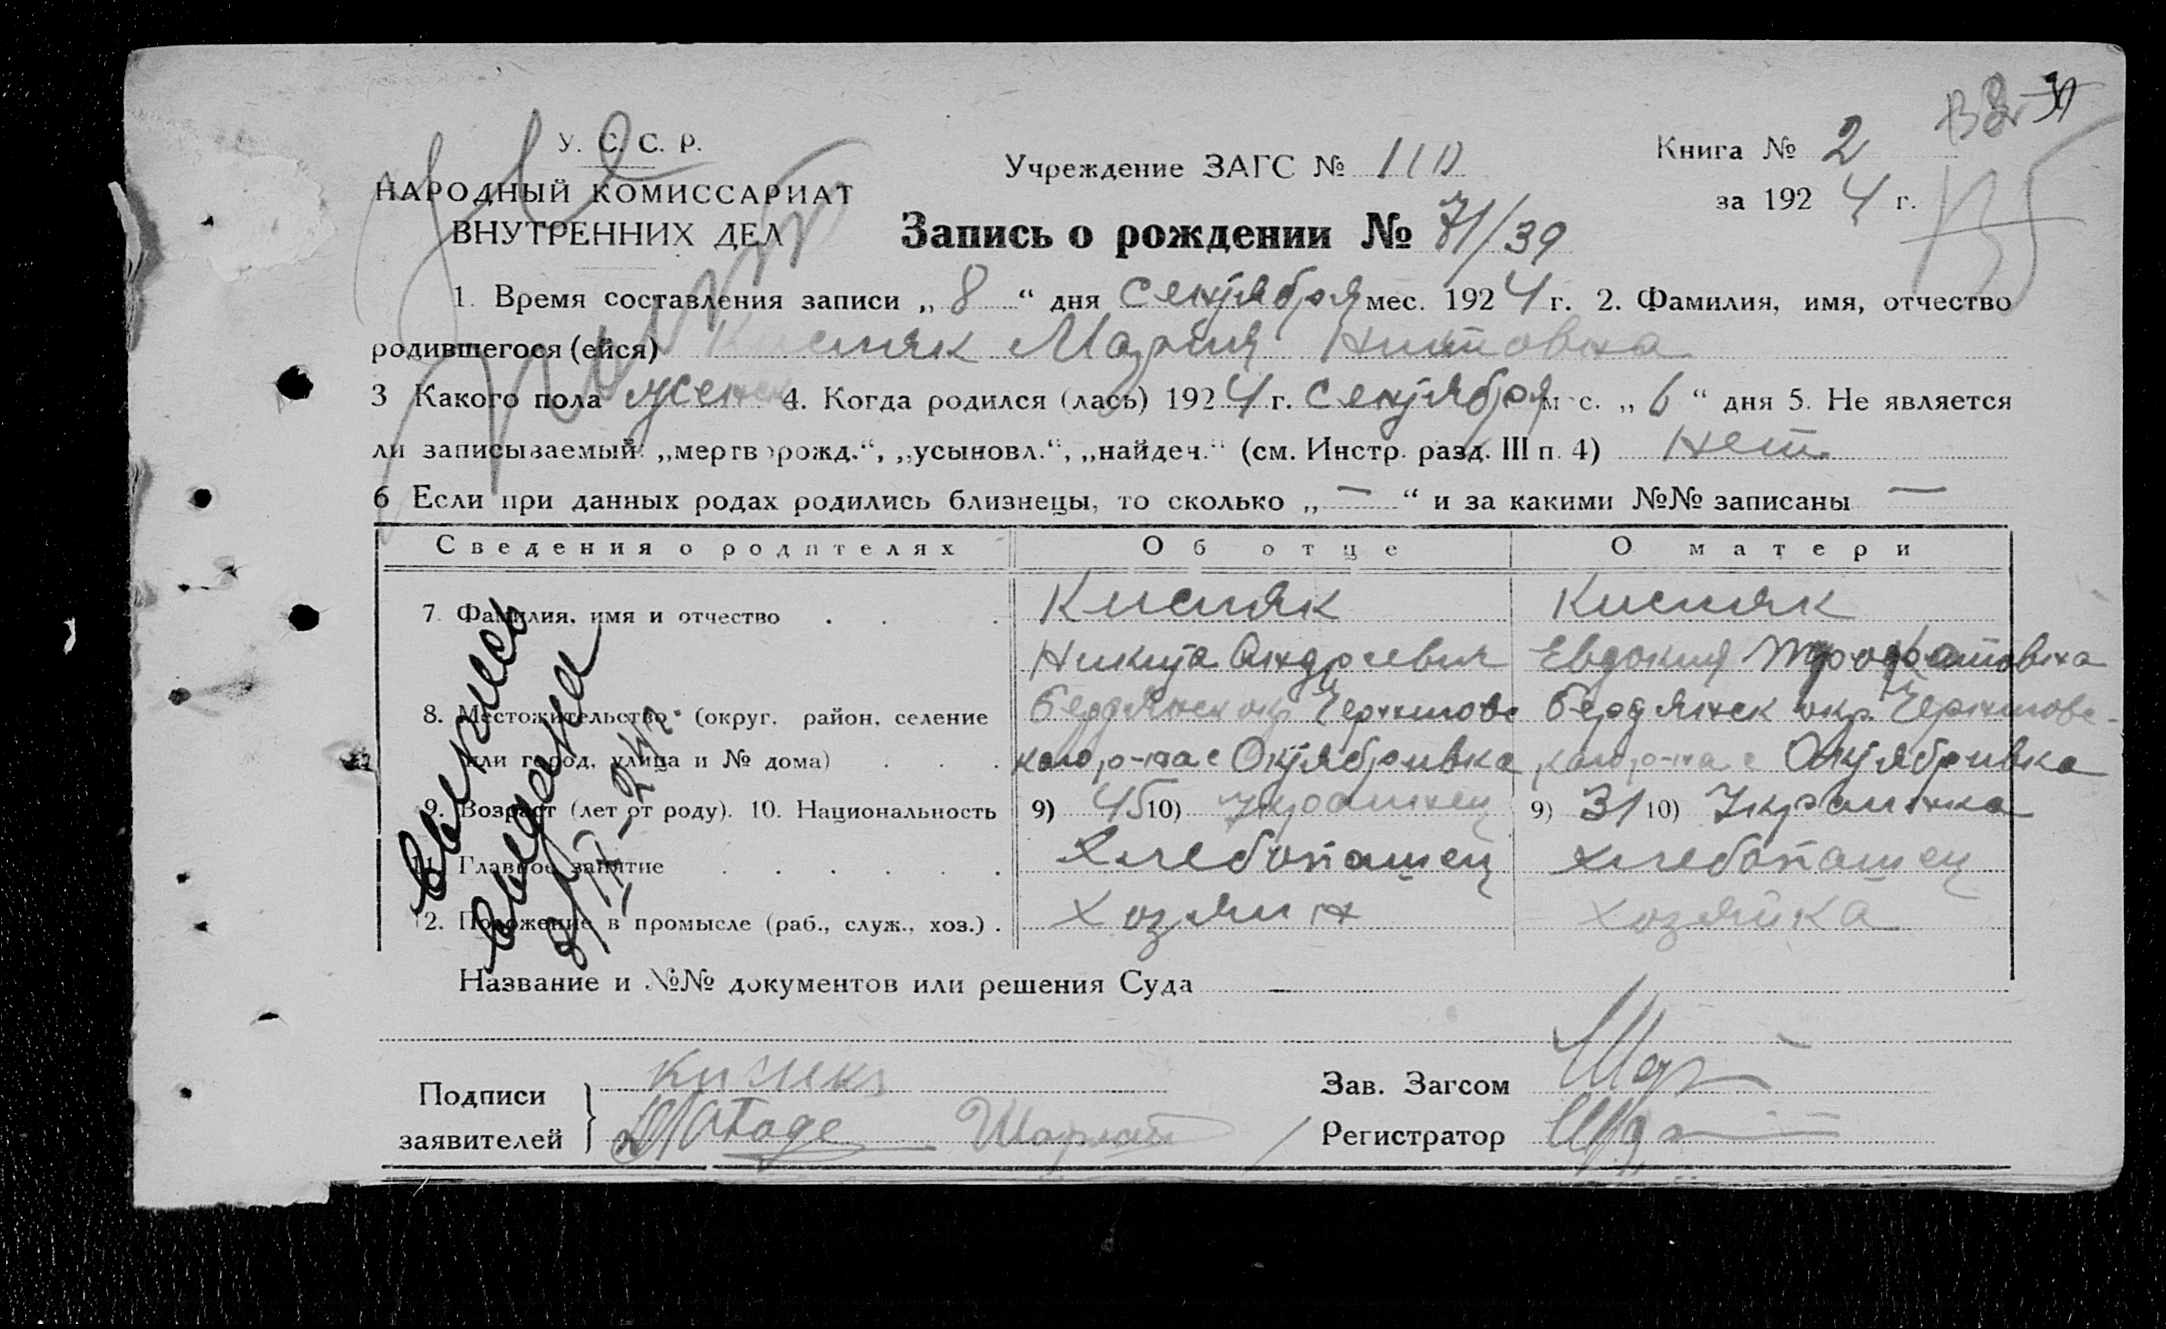 У. С. С. Р.
НАРОДНЫЙ КОМИССАРИАТ
ВНУТРЕННИХ ДЕЛ
Учреждение ЗАГС № 110
Книга № 2
за 1924 г.
Запись о рождении № 71/39
1. Время составления записи „ 8 “ дня сентября мес. 1924 г. 2. Фамилия, имя, отчество
родившегося (ейся) Кисляк Мария Никитовна
3 Какого пола женск 4. Когда родился (лась) 1924 г. сентября м с. „ 6 “ дня 5. Не является
ли записываемый: „мертворожд.“, „усыновл.“, „найдеч.“ (см. Инстр. разд. III п. 4) Нет
6 Если при данных родах родились близнецы, то сколько „ — “ и за какими №№ записаны —
Сведения о родителях Об отце О матери
7. Фамилия, имя и отчество Кисляк Кисляк
Никита Андреевич Евдокия Трофимовна
8. Местожительство (округ, район, селение Бердянск окр Черниговс Бердянск окр. Черниговс-
или город, улица и № дома) кого р-на с Октябривка кого р-на с Октябривка
9. Возраст (лет от роду). 10. Национальность 9) 45 10) Украинец 9) 31 10) Украинка
11. Главное занятие Хлебопашец Хлебопашец
12. Положение в промысле (раб., служ., хоз.) Хозяин Хозяйка
Название и №№ документов или решения Суда —
Подписи
заявителей
Зав. Загсом
Регистратор